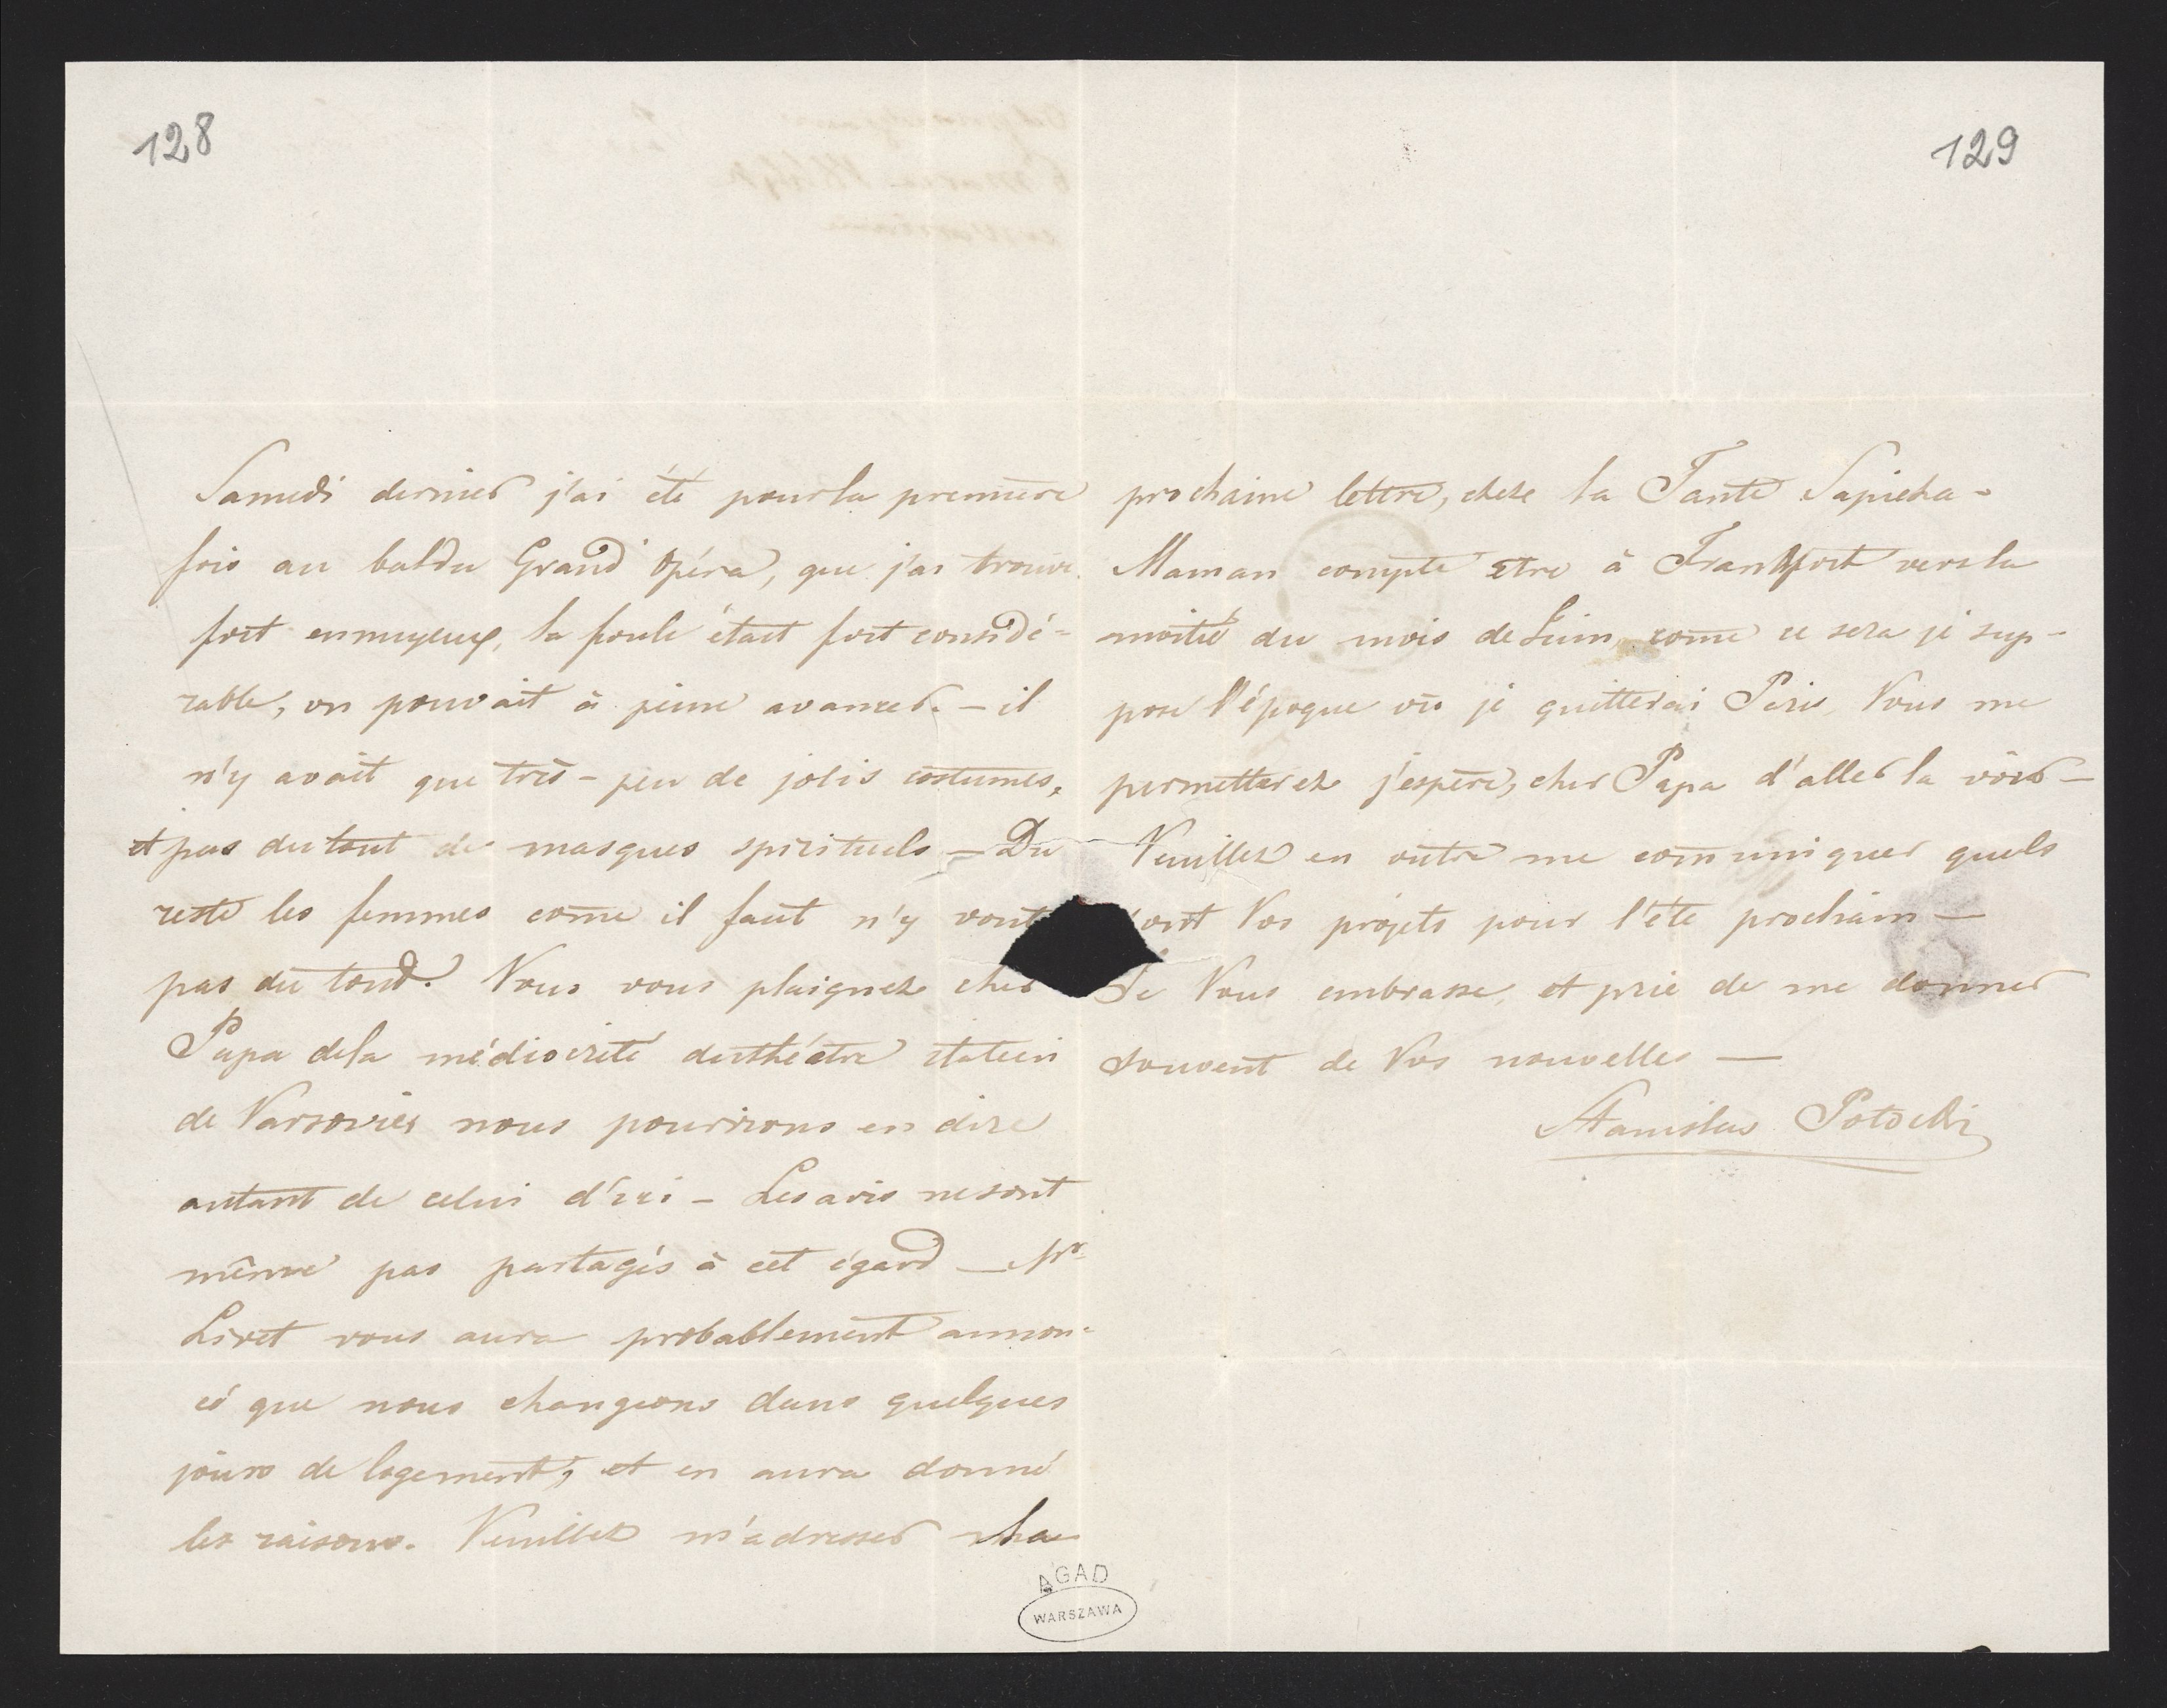 128
Samedi dernier j'ai été pour la première
fois au bal du Grand Opéra, que j'ai trouvé
fort ennuyeux, la foule était fort considé-
rable, on pouvait à peine avancer. – il
n'y avait que très-peu de jolis costumes,
et pas du tout de masques spirituels – Du
reste les femmes come il faut n'y vont
pas du tout. Vous vous plaignez cher
Papa de la médiocrité du théâtre italien
de Varsovie, nous pourrions en dire
autant de celui d'ici – Les avis ne sont
même pas partagés à cet égard – Mr
Livet vous aura probablement annon-
cé que nous changeons dans quelques
jours de logement, et en aura donné
les raisons. Veuillez m'adresser
AGAD
WARSZAWA
129
prochaine lettre, chez la Tante Sapieha –
Maman compte être à Frankfort vers la
moitié du mois de Juin, come ce sera je sup-
pose l'époque où je quitterai Paris, Vous me
permetterez j'espère, cher Papa d'aller la voir –
Veuillez en outre me communiquer quels
sont Vos projets pour l'été prochain –
Je Vous embrasse, et prie de me donner
souvent de Vos nouvelles –
Stanislas Potocki